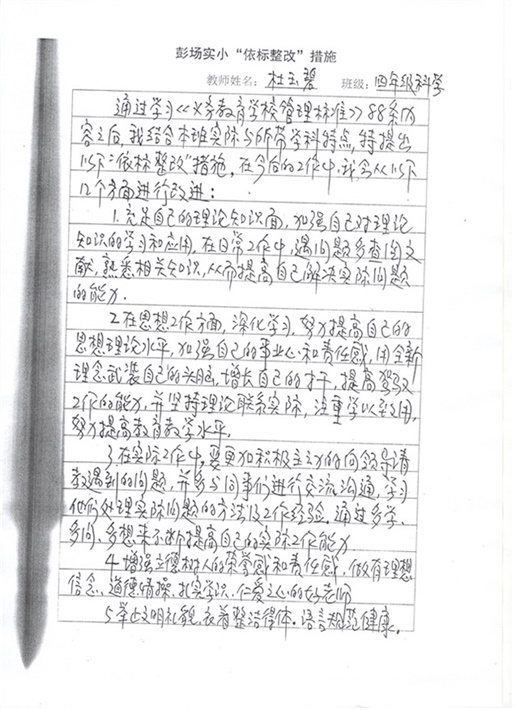 彭场实小“依标整改”措施
教师姓名：杜玉碧 班级：四年级科学
通过学习《义务教育学校管理标准》88条内
容之后，我结合本班实际与所带学科特点，特提出
以下“依标整改”措施。在今后的工作中，我会从以下
几个方面进行改进：
1.充足自己的理论知识面，加强自己对理论
知识的学习和应用，在日常工作中，遇问题多查阅文
献，熟悉相关知识，从而提高自己解决实际问题
的能力.
2.在思想工作方面，深化学习，努力提高自己的
思想理论水平，加强自己的事业心和责任感，用全新
理念武装自己的头脑，增长自己的才干，提高驾驭
工作的能力，并坚持理论联系实际，注重学以致用，
努力提高教育教学水平。
3.在实际工作中，要更加积极主动的向领导请
教遇到的问题，并多与同事们进行交流沟通，学习
他们处理实际问题的方法及工作经验。通过多学、
多问、多想来不断提高自己的实际工作能力.
4.增强立德树人的荣誉感和责任感，做有理想
信念、道德情操、扎实学识、仁爱之心的好老师
5.举止文明礼貌，衣着整洁得体。语言规范健康。